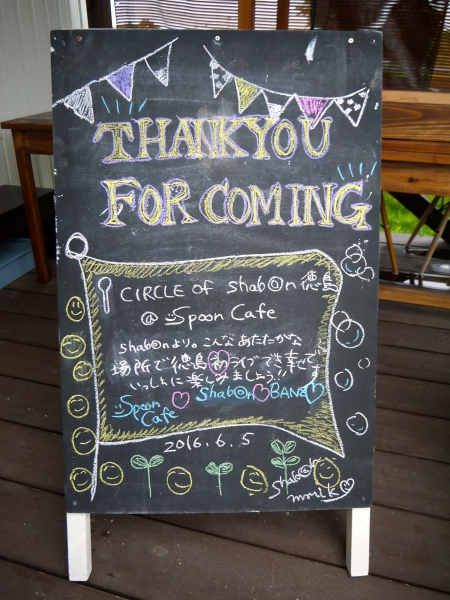 THANK YOU
FOR COMING
CIRCLE OF shab@n 徳島
@ Spoon Cafe
shab@nより。こんなあたたかな
場所で徳島初ライブで幸せです
いっしょに楽しみましょう!!
Spoon Cafe
shab@n BAND
2016.6.5
shab@n